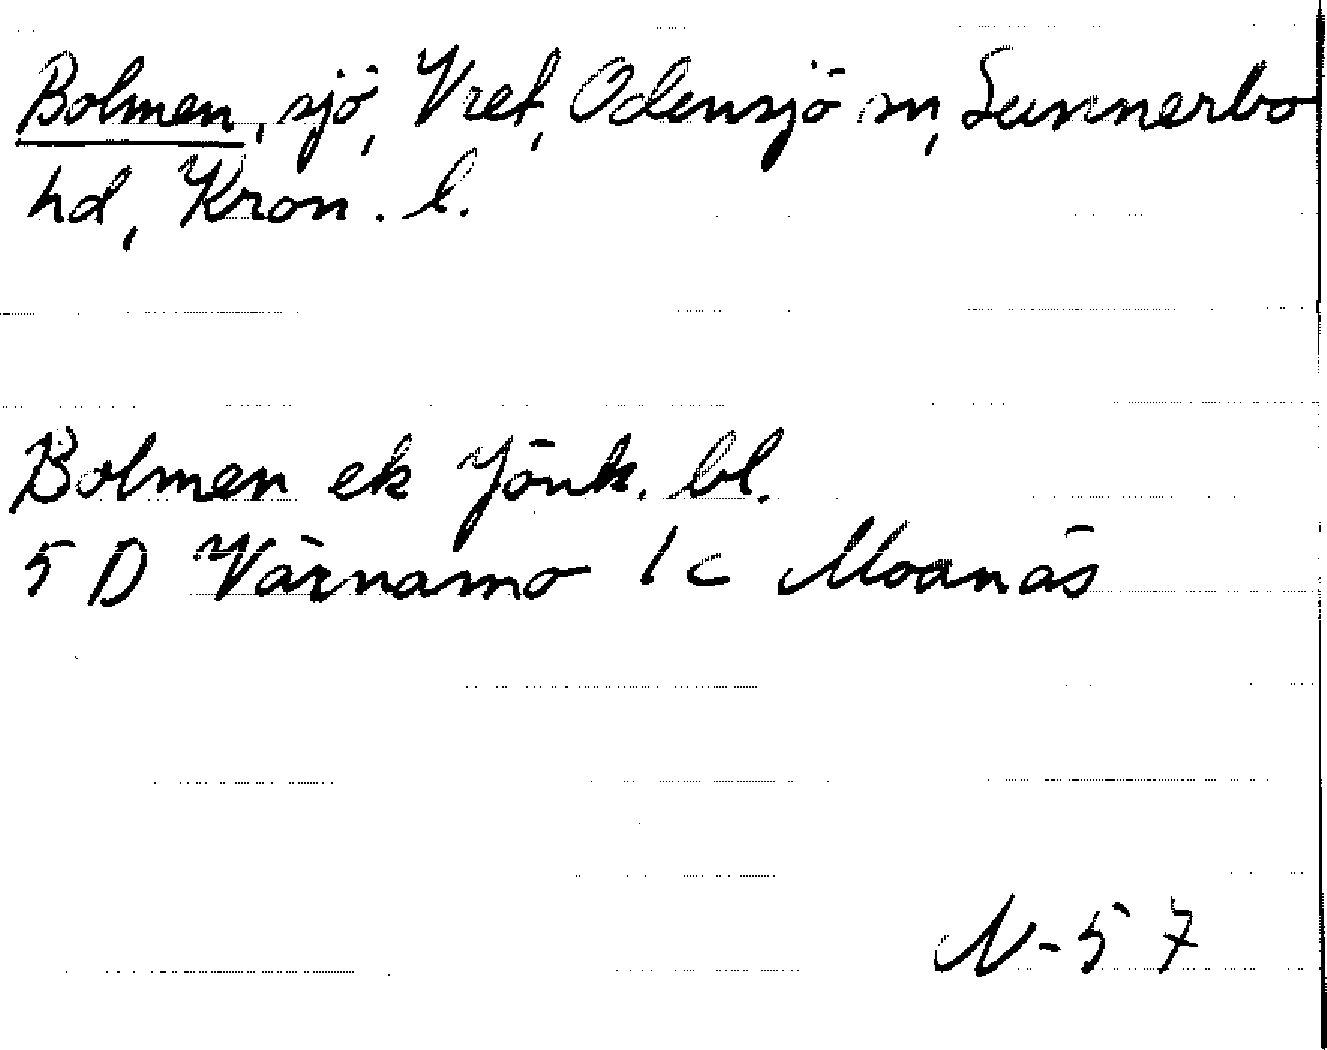 Bolmen, sjö, Vret, Odensjö sn, Sunnerbo
hd, Kron. l.
Bolmen ek Jönk. bl.
5 D Värnamo 1c Moanäs
N-57